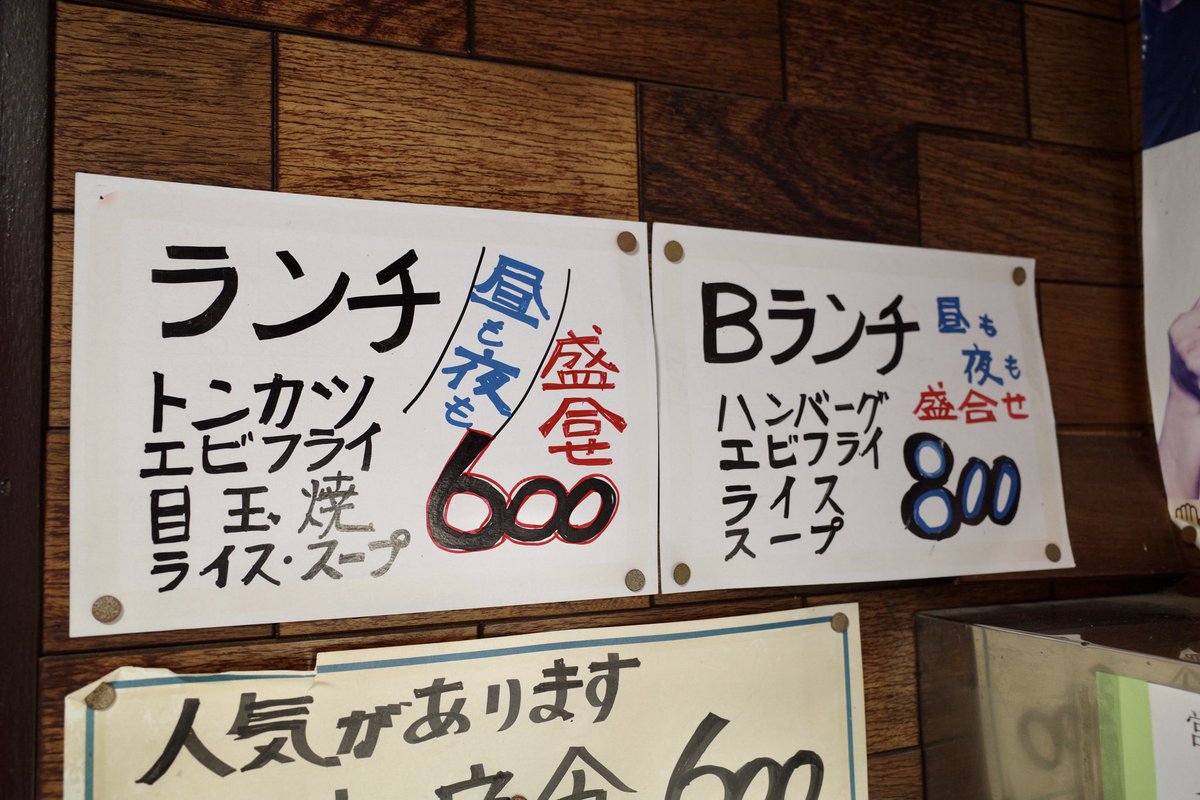 ランチ
昼も夜も
盛合せ
トンカツ
エビフライ
目玉焼
ライス・スープ
600
Bランチ
昼も
夜も
盛合せ
ハンバーグ
エビフライ
ライス
スープ
800
人気があります
600